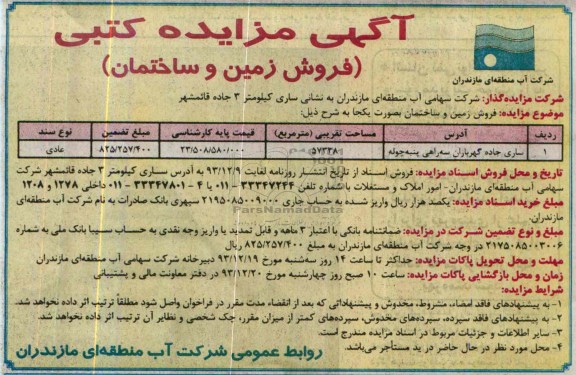 آگهی مزایده کتبی
(فروش زمین و ساختمان)
شرکت آب منطقه‌ای مازندران
شرکت مزایده‌گذار: شرکت سهامی آب منطقه‌ای مازندران به نشانی ساری کیلومتر ۳ جاده قائمشهر
موضوع مزایده: فروش زمین و ساختمان بصورت یکجا به شرح ذیل:
ردیف آدرس مساحت تقریبی (مترمربع) قیمت پایه کارشناسی مبلغ تضمین نوع سند
۱ ساری جاده گهرباران سه‌راهی پنبه‌چوله ۵۷۳۳۸ ۲۳/۵۰۸/۵۸۰/۰۰۰ ۸۲۵/۲۵۷/۴۰۰ عادی
تاریخ و محل فروش اسناد مزایده: فروش اسناد از تاریخ انتشار روزنامه لغایت ۹۳/۱۲/۹ به آدرس ساری کیلومتر ۳ جاده قائمشهر شرکت
سهامی آب منطقه‌ای مازندران- امور املاک و مستغلات با شماره تلفن ۳۳۳۴۷۲۴۴-۰۱۱ یا ۴ - ۳۳۳۴۷۸۰۱-۰۱۱ داخلی ۱۲۷۸ و ۱۲۰۸
مبلغ خرید اسناد مزایده: یکصد هزار ریال واریز شده به حساب جاری ۲۱۹۵۰۸۵۰۰۹۰۰۰ سپهری بانک صادرات به نام شرکت آب منطقه‌ای
مازندران.
مبلغ و نوع تضمین شرکت در مزایده: ضمانتنامه بانکی با اعتبار ۳ ماهه و قابل تمدید یا واریز وجه نقدی به حساب سیبا بانک ملی به شماره
۲۱۷۵۰۸۵۰۰۳۰۰۶ در وجه شرکت آب منطقه‌ای مازندران به مبلغ ۸۲۵/۲۵۷/۴۰۰ ریال
مهلت و محل تحویل پاکات مزایده: حداکثر تا ساعت ۱۴ روز سه‌شنبه مورخ ۹۳/۱۲/۱۹ دبیرخانه شرکت سهامی آب منطقه‌ای مازندران
زمان و محل بازگشایی پاکات مزایده: ساعت ۱۰ صبح روز چهارشنبه مورخ ۹۳/۱۲/۲۰ در دفتر معاونت مالی و پشتیبانی
شرایط مزایده:
۱- به پیشنهادهای فاقد امضاء، مشروط، مخدوش و پیشنهاداتی که بعد از انقضاء مدت مقرر در فراخوان واصل شود مطلقاً ترتیب اثر داده نخواهد شد.
۲- به پیشنهادهای فاقد سپرده، سپرده‌های مخدوش، سپرده‌های کمتر از میزان مقرر، چک شخصی و نظایر آن ترتیب اثر داده نخواهد شد.
۳- سایر اطلاعات و جزئیات مربوط در اسناد مزایده مندرج است.
۴- محل مورد نظر در حال حاضر در ید مستأجر می‌باشد.
روابط عمومی شرکت آب منطقه‌ای مازندران
ParsNamadData